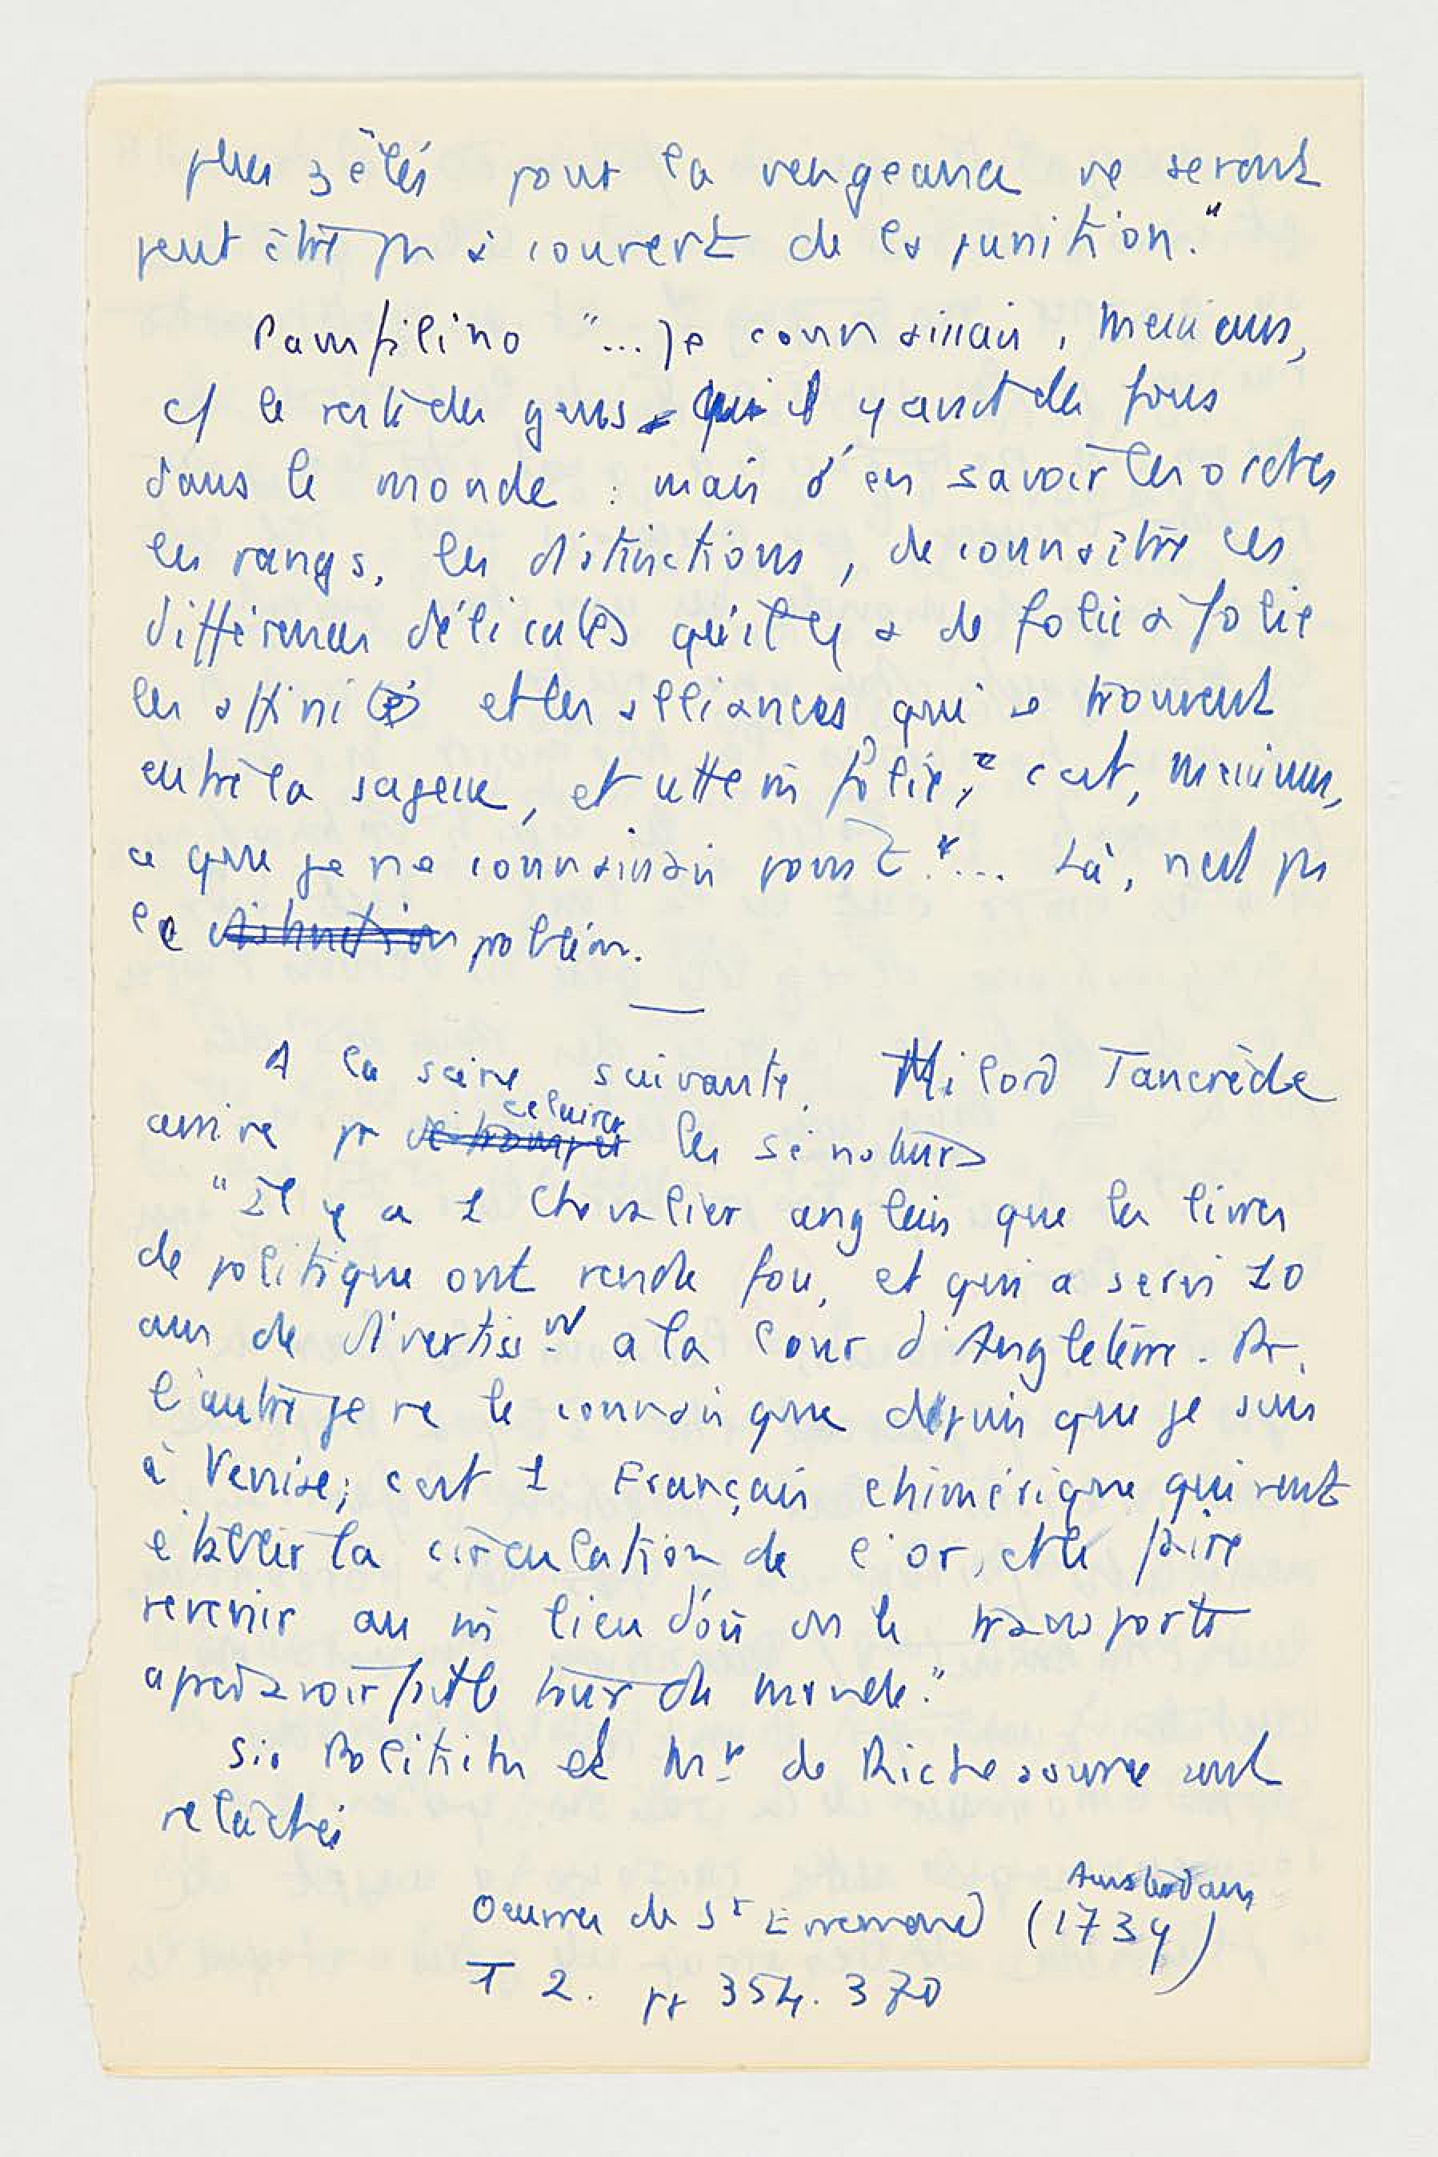 plus zélés pour la vengeance ne seront
peut être pas à couvert de la punition."
Pamfilino "... je connaissais, Messieurs,
c/ le reste des gens qu'il y avait des fous
dans le monde : mais d'en savoir les ordres
les rangs, les distinctions, de connaître ces
différences délicates qu'il y a de folie à folie
les affinités et les alliances qui se trouvent
entre la sagesse, et cette m̄ folie, c'est, Messieurs,
ce que je ne connaissais point "... Là, n'est pas
le distinction problèm.
—
A la scène suivante, Milord Tancrède
arrive pr détromper éclairer les sénateurs
"Il y a 1 Chevalier anglais que les livres
de politique ont rendu fou, et qui a servi 10
ans de divertiss^nt à la Cour d'Angleterre. Pr.
l'autre je ne le connais que depuis que je suis
à Venise; c'est 1 Français chimérique qui veut
établir la circulation de l'or, et le faire
revenir au m̄ lieu d'où on le transporte
après avoir fait le tour du monde."
Sir Politick et Mr de Richesource sont
relâchés
Oeuvres de St Evremond (Amsterdam 1739)
T 2. pp 354. 370